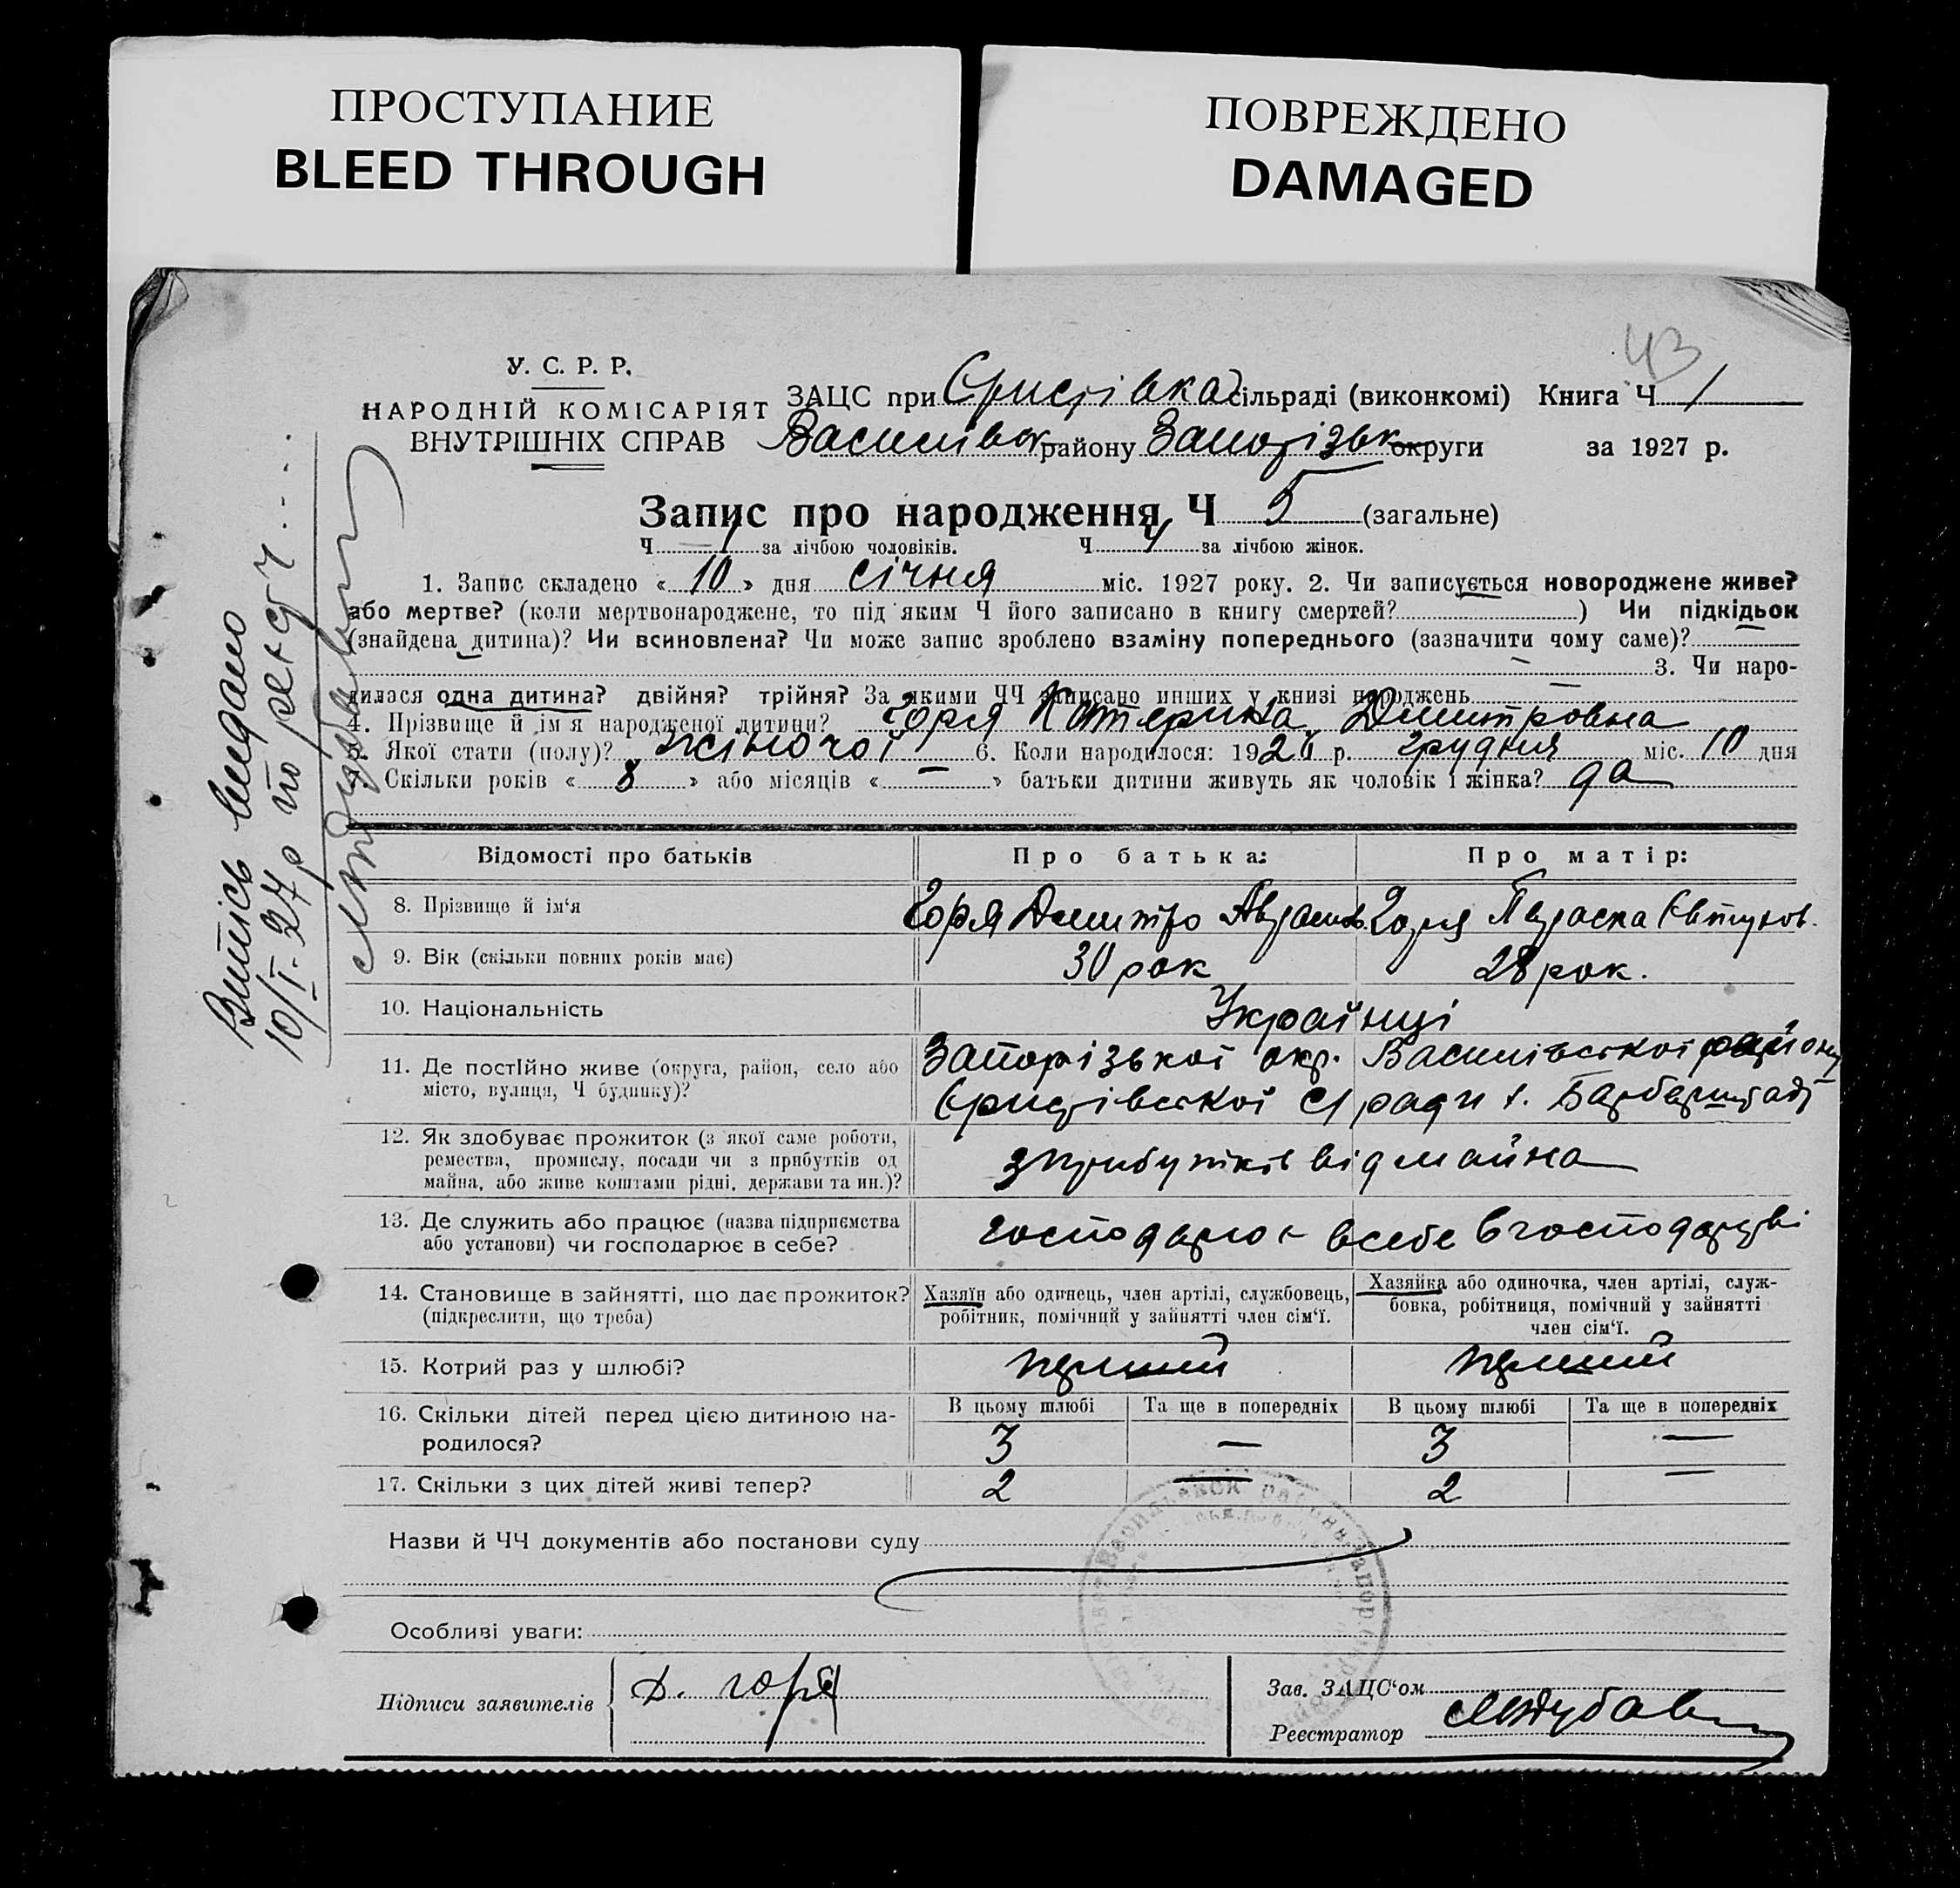 ПРОСТУПАНИЕ
BLEED THROUGH
ПОВРЕЖДЕНО
DAMAGED
43
У. С. Р. Р.
НАРОДНІЙ КОМІСАРІЯТ
ВНУТРІШНІХ СПРАВ
ЗАЦС при сільраді (виконкомі) Книга Ч 1
Василівськ району Запорізьк округи за 1927 р.
Запис про народження Ч 5 (загальне)
Ч 1 за лічбою чоловіків. Ч 4 за лічбою жінок.
1. Запис складено « 10 » дня січня міс. 1927 року. 2. Чи записується новороджене живе?
або мертве? (коли мертвонароджене, то під яким Ч його записано в книгу смертей? ) Чи підкідьок
(знайдена дитина)? Чи всиновлена? Чи може запис зроблено взаміну попереднього (зазначити чому саме)?
— 3. Чи наро-
дилася одна дитина? двійня? трійня? За якими ЧЧ записано инших у книзі народжень —
4. Прізвище й ім'я народженої дитини? Горя Катерина Дмитровна
5. Якої стати (полу)? жіночої 6. Коли народилося: 1926 р. грудня міс. 10 дня
Скільки років « 8 » або місяців « — » батьки дитини живуть як чоловік і жінка? да
Відомості про батьків Про батька: Про матір:
8. Прізвище й ім'я Горя Дмитро Горя Параска
9. Вік (скільки повних років має) 30 рок 28 рок.
10. Національність Українці
11. Де постІйно живе (округа, район, село або Запорізької окр. Василівської району
місто, вулиця, Ч будинку)? с/ради
12. Як здобуває прожиток (з якої саме роботи,
ремества, промислу, посади чи з прибутків од з прибутків від майна
майна, або живе коштами рідні, держави та ин.)?
13. Де служить або працює (назва підприємства господарює в себе в господарстві
або установи) чи господарює в себе?
14. Становище в зайнятті, що дає прожиток? Хазяїн або одинець, член артілі, службовець, Хазяйка або одиночка, член артілі, служ-
(підкреслити, що треба) робітник, помічний у зайнятті член сім'ї. бовка, робітниця, помічний у зайнятті
член сім'ї.
15. Котрий раз у шлюбі? перший перший
16. Скільки дітей перед цією дитиною на- В цьому шлюбі Та ще в попередніх В цьому шлюбі Та ще в попередніх
родилося? 3 — 3 —
17. Скільки з цих дітей живі тепер? 2 — 2 —
Назви й ЧЧ документів або постанови суду
Особливі уваги:
Підписи заявителів Д. Горя
Зав. ЗАЦС'ом
Реєстратор
Витпісь видано
10/I-27 р по